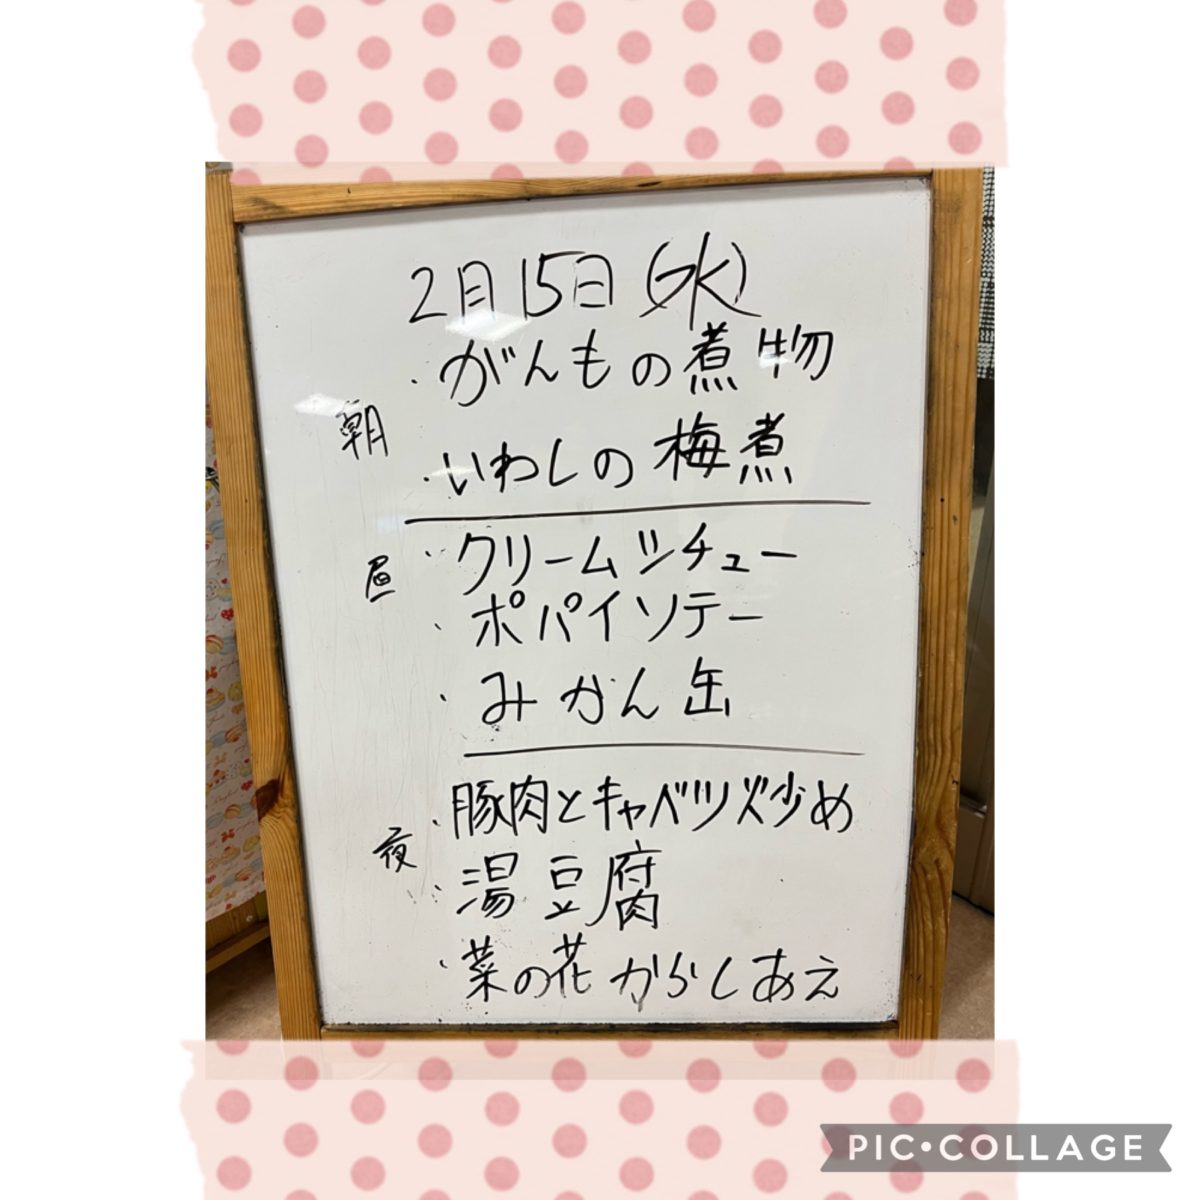 2月15日(水)
・がんもの煮物
朝
・いわしの梅煮
昼
・クリームシチュー
・ポパイソテー
・みかん缶
・豚肉とキャベツ炒め
夜
・湯豆腐
・菜の花からしあえ
PIC•COLLAGE